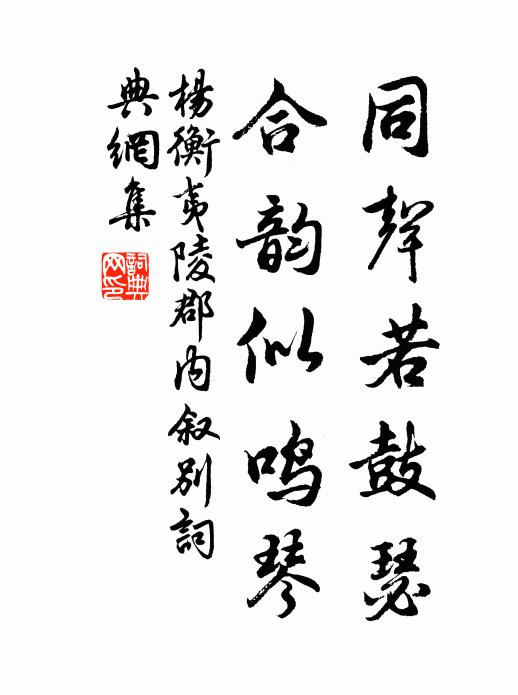 同聲若鼓瑟
合韵似鸣琴
楊衡夷陵郡内叙别詞
典網集
詞典网印